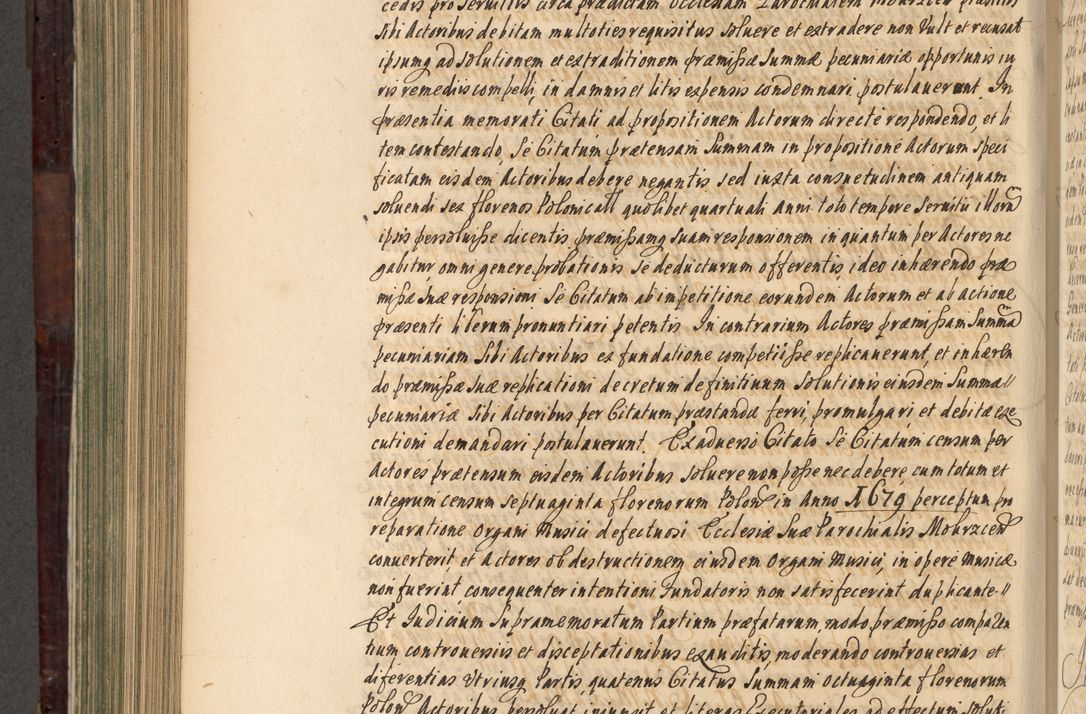 cedis pro Seruitiis circa prædictam Ecclesiam Parochialem Mokrzcen præstitis
sibi Actoribus debitam multoties requisitus soluere et extradere non Vult et recusat
ipsumq ad solutionem et extraditionem præmissæ Summæ pecuniariæ opportunis iu
ris remediis compelli, in damnis et litis expensis condemnari postulauerunt. In
præsentia memorati Citati ad propositionem Actorum directe respondendo, et li
tem contestando, Se Citatum prætensam Summam in propositione Actorum speci
ficatam eisdem Actoribus debere negantis, sed iuxta consuetudinem antiquam
soluendi sex florenos Polonicall quolibet quartuali Anni toto tempore Seruitii illorū
ipsis persoluisse dicentis, præmissamq suam responsionem in quantum per Actores ne
gabitur omni genere probationis se deducturum offerentis, ideo inhærendo præ
missæ suæ responsioni Se Citatum ab impetitione eorundem Actorum et ab actione
præsenti liberum pronuntiari petentis In contrarium Actores præmissam Summā
pecuniariam Sibi Actoribus ex fundatione competiisse replicauerunt, et inhæren
do præmissæ suæ replicationi decretum definitiuum solutionis eiusdem Summæ
pecuniariæ Sibi Actoribus per Citatum præstandæ ferri, promulgari et debitæ exe
cutioni demandari postulauerunt. Ex aduerso Citato Se Citatum censum per
Actores prætensum eisdem Actoribus soluere non posse nec debere, cum totum et
integrum censum septuaginta florenorum Polon in Anno 1679 perceptum pro
reparatione Organi Musici defectuosi Ecclesiæ Suæ Parochialis Mokrzcen
conuerterit et Actores ob destructionem eiusdem Organi Musici, in opere Musicæ
non fuerint consequenter intentioni Fundatoris non satisfecerint duplicante //
Et Iudicium Supramemoratum Partium præfatarum, modo præmisso comparen
tium controuersiis et disceptationibus exauditis, moderando controuersias et
differentias Vtriusq Partis, quatenus Citatus Summam octuaginta florenorum
Polon Actoribus persoluat iniunxit et literas Executoriales ad effectum Soluti